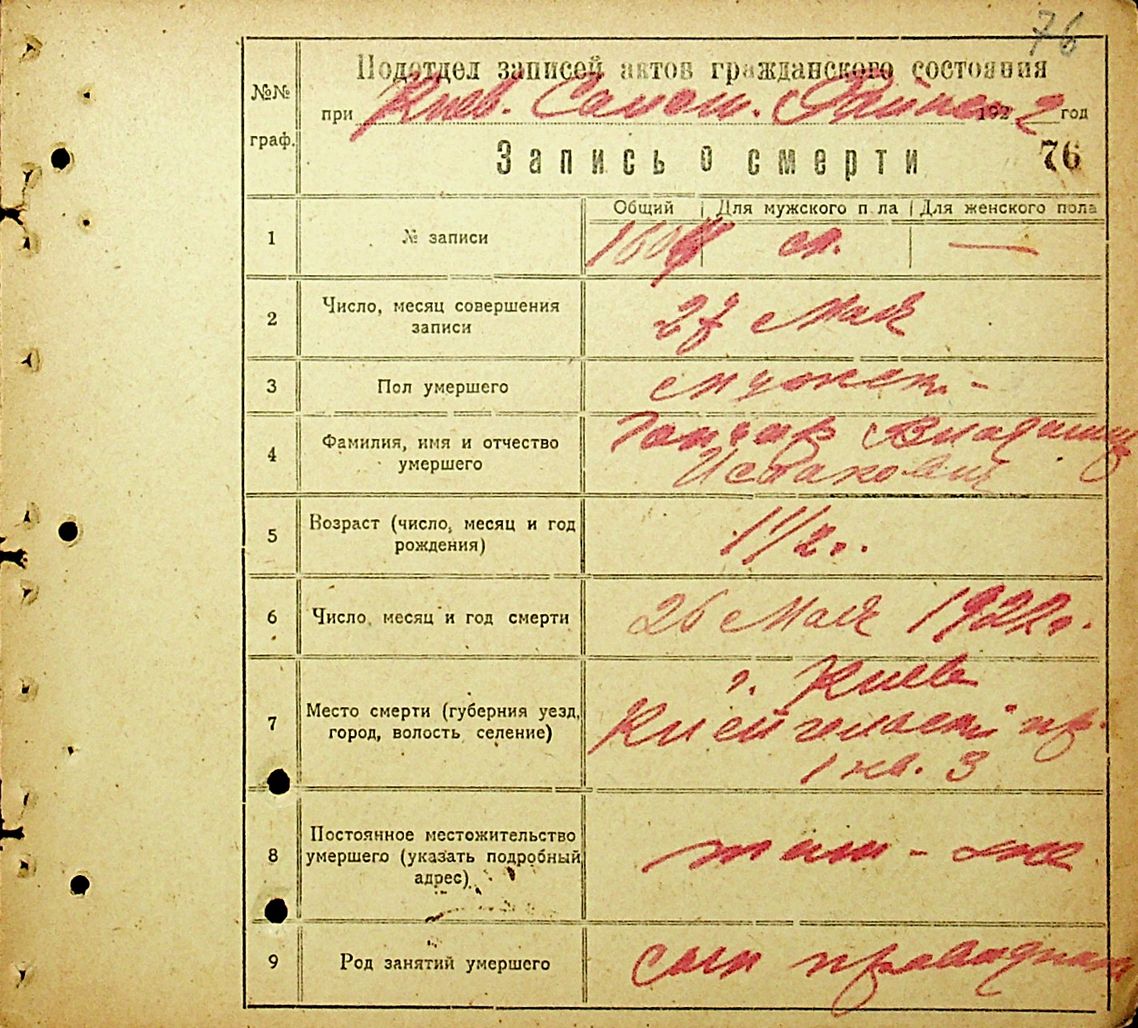 76
Подотдел записей актов гражданского состояния
№№ граф.
при Киев. Солом. 1922 год
Запись о смерти 76
Общий Для мужского п ла Для женского пола
1 № записи м. —
2 Число, месяц совершения записи 27 Мая
3 Пол умершего мужск. -
4 Фамилия, имя и отчество умершего Гончар Владимир
Исаакович
5 Возраст (число, месяц и год рождения) 1 1/2 г.
6 Число, месяц и год смерти 26 Мая 1922 г.
7 Место смерти (губерния уезд, город, волость селение) г. Киев
пр.
1 кв. 3
8 Постоянное местожительство умершего (указать подробный адрес) там - же
9 Род занятий умершего сын проводника